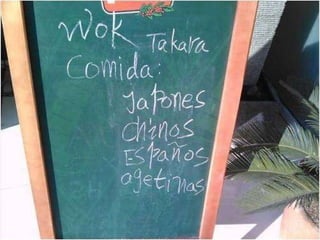 Wok Takara
Comida:
Japones
chinos
Españos
agetinas